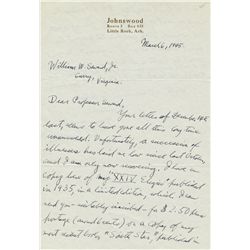 Johnswood
Route 3 Box 631
Little Rock, Ark.
March 6, 1945.
William W. Seward, Jr.
Surry, Virginia.
Dear Professor Seward,
Your letter of December 12th
last, seems to have gone all this long time
unanswered. Unfortunately, a succession of
illnesses has laid us low since last October,
and I am only now recovering. I have one
copy here of my "XXIV Elegies" published
in 1935 in a limited edition, which I can
send you - suitably inscribed - for $2.50 plus
postage (                ) or a copy of my
most recent book, "South Star", published in